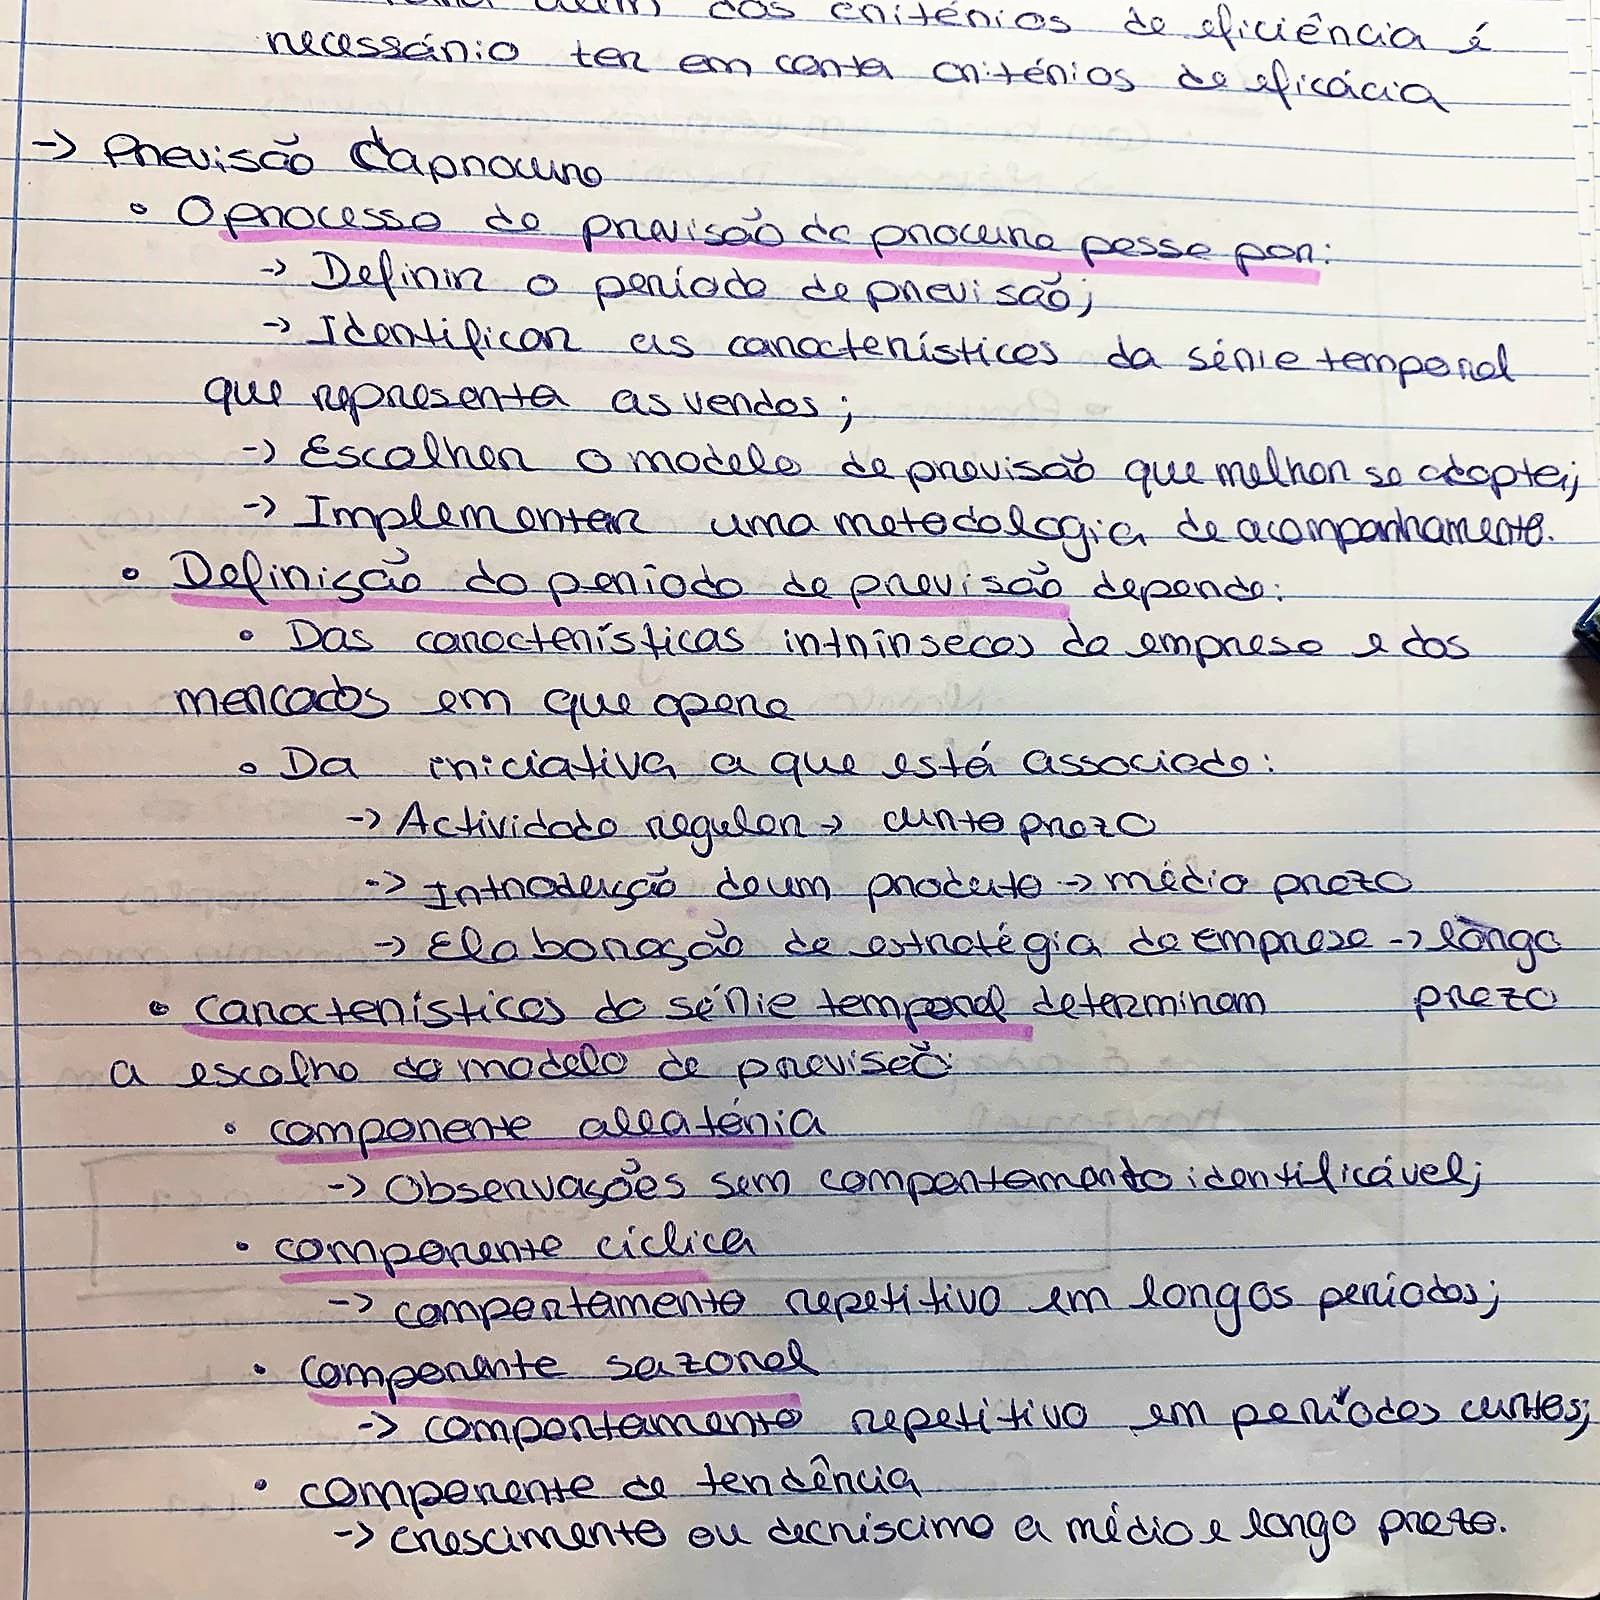 além dos critérios de eficiência é
necessário ter em conta critérios de eficácia
→ Previsão da procura
• O processo de previsão da procura passa por:
→ Definir o período de previsão;
→ Identificar as características da série temporal
que representa as vendas;
→ Escolher o modelo de previsão que melhor se adapte;
→ Implementar uma metodologia de acompanhamento.
• Definição do período de previsão depende:
• Das características intrínsecas da empresa e dos
mercados em que opera
• Da iniciativa a que está associado:
→ Actividade regular → curto prazo
→ Introdução de um produto → médio prazo
→ Elaboração da estratégia da empresa → longo
prazo
• Características da série temporal determinam
a escolha do modelo de previsão:
• componente alleatória
→ Observações sem comportamento identificável;
• componente cíclica
→ comportamento repetitivo em longos períodos;
• componente sazonal
→ comportamento repetitivo em períodos curtos;
• componente de tendência
→ crescimento ou decríscimo a médio e longo prazo.